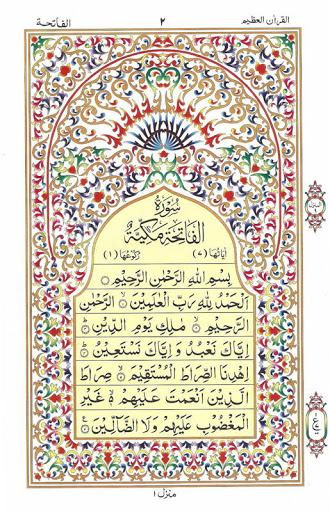 الفاتحة ٢ القرآن العظيم
سُوْرَةُ
الْفَاتِحَةِ مَكِّيَّةٌ
اٰيَاتُهَا (٧) رُكُوْعُهَا (١)
بِسْمِ اللهِ الرَّحْمٰنِ الرَّحِيْمِ
اَلْحَمْدُ لِلّٰهِ رَبِّ الْعٰلَمِيْنَ الرَّحْمٰنِ
الرَّحِيْمِ مٰلِكِ يَوْمِ الدِّيْنِ
اِيَّاكَ نَعْبُدُ وَ اِيَّاكَ نَسْتَعِيْنُ
اِهْدِنَا الصِّرَاطَ الْمُسْتَقِيْمَ صِرَاطَ
الَّذِيْنَ اَنْعَمْتَ عَلَيْهِمْ غَيْرِ
الْمَغْضُوْبِ عَلَيْهِمْ وَلَا الضَّآلِّيْنَ
منزل ١